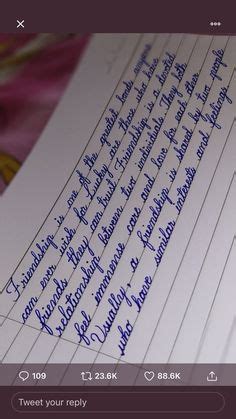 Friendship is one of the greatest bonds anyone
can ever wish for. Lucky are those who have
friends they can trust. Friendship is a devoted
relationship between two individuals. They both
feel immense care and love for each other.
Usually, a friendship is shared by two people
who have similar interests and feelings
109
23.6K
88.6K
Tweet your reply